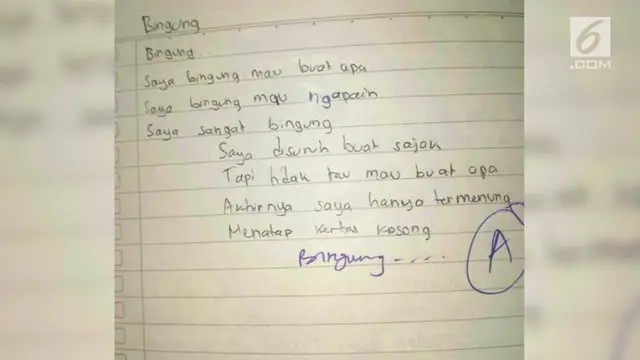 Bingung
Bingung...
Saya bingung mau buat apa
Saya bingung mau ngapain
Saya sangat bingung
Saya disuruh buat sajak
Tapi tidak tau mau buat apa
Akhirnya saya hanya termenung
Menatap kertas kosong
Bingung.....
A
6
.COM